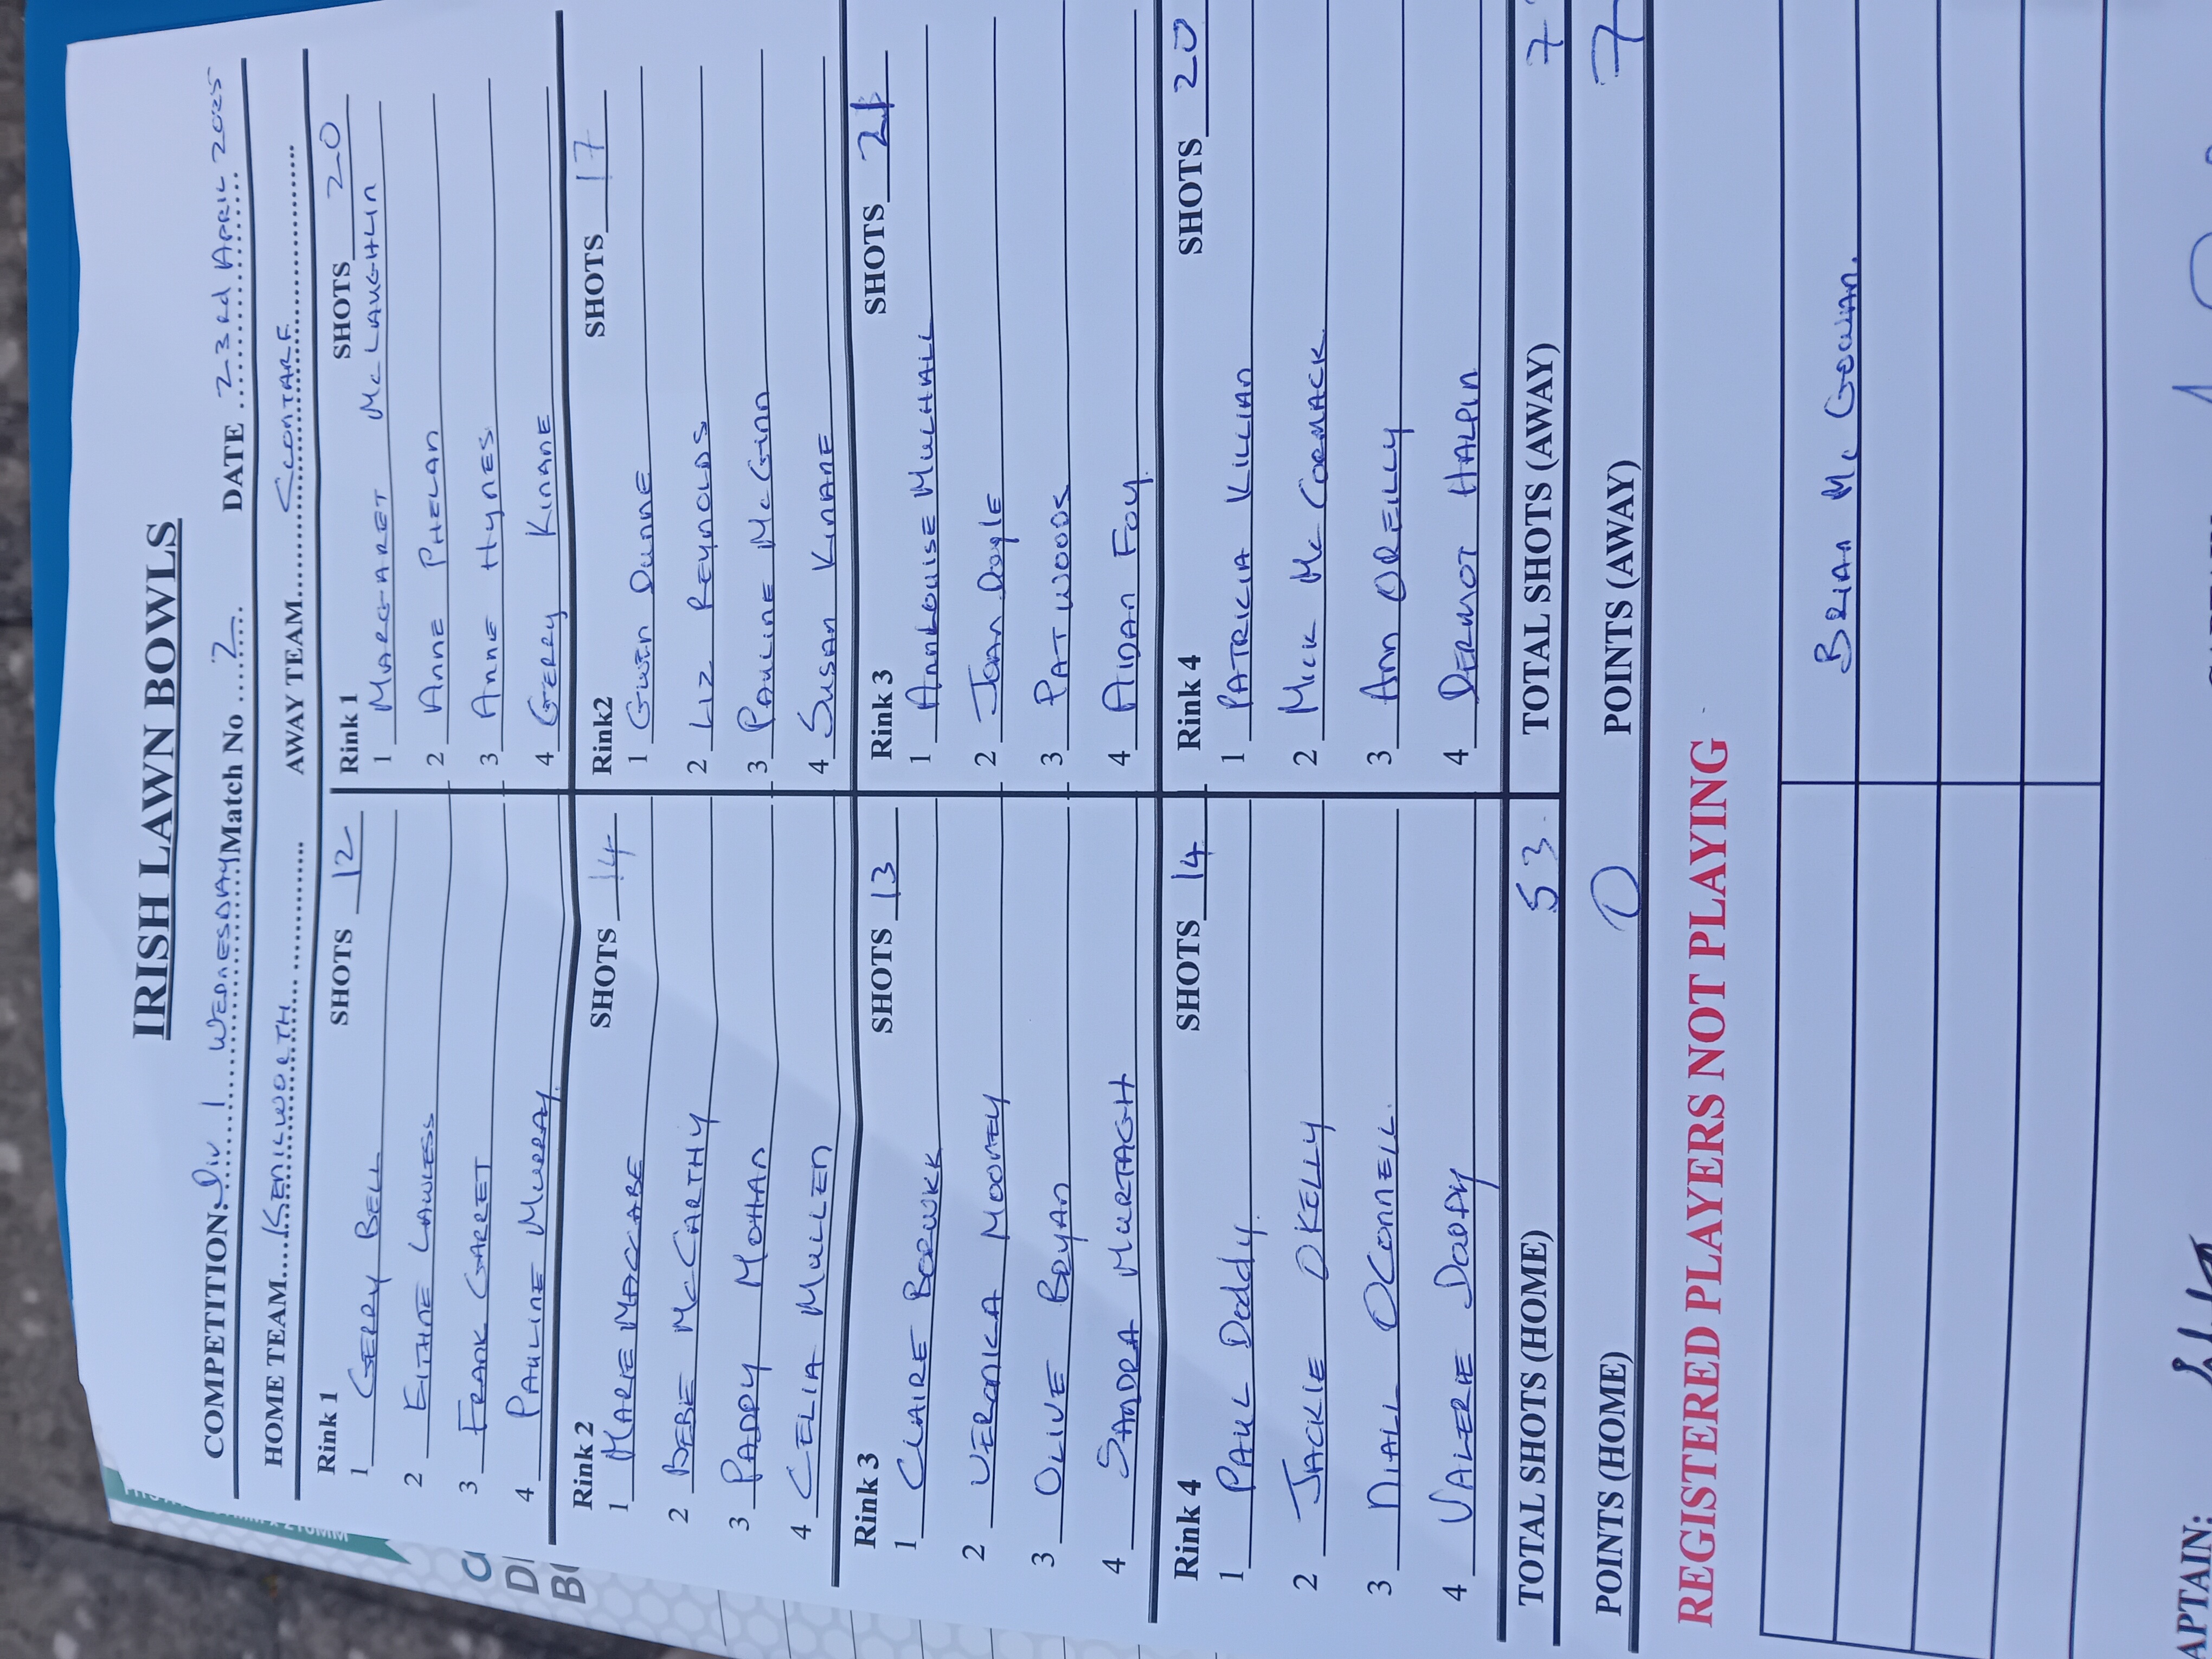 IRISH LAWN BOWLS
COMPETITION: Div 1 WEDNESDAY Match No 2 DATE 23rd APRIL 2025
HOME TEAM KENILWORTH AWAY TEAM CLONTARF
Rink 1 SHOTS 12 Rink 1 SHOTS 20
1 GERRY BELL 1 MARGARET McLAUGHLIN
2 EITHNE LAWLESS 2 ANNE PHELAN
3 FRANK GARRET 3 ANNE HYNES
4 PAULINE MURRAY 4 GERRY KINANE
Rink 2 SHOTS 14 Rink2 SHOTS 17
1 MARIE MACCABE 1 GWEN DUNNE
2 BEBE McCARTHY 2 LIZ REYNOLDS
3 PADDY MOHAN 3 PAULINE McGINN
4 CELIA MULLEN 4 SUSAN KINANE
Rink 3 SHOTS 13 Rink 3 SHOTS 21
1 CLAIRE 1 ANNLOUISE MULHALL
2 VERONICA MOONEY 2 JOAN DOYLE
3 OLIVE BRYAN 3 PAT WOODS
4 SANDRA MURTAGH 4 AIDAN FOY
Rink 4 SHOTS 14 Rink 4 SHOTS 20
1 PAUL Deddy 1 PATRICIA KILLIAN
2 JACKIE OKELLY 2 MICK McCORMACK
3 NIALL OCONNELL 3 ANN OREILLY
4 VALERIE 4 DERMOT HALPIN
TOTAL SHOTS (HOME) 53 TOTAL SHOTS (AWAY) 7
POINTS (HOME) 0 POINTS (AWAY) 7
REGISTERED PLAYERS NOT PLAYING
BRIAN Mc GOWAN.
APTAIN: